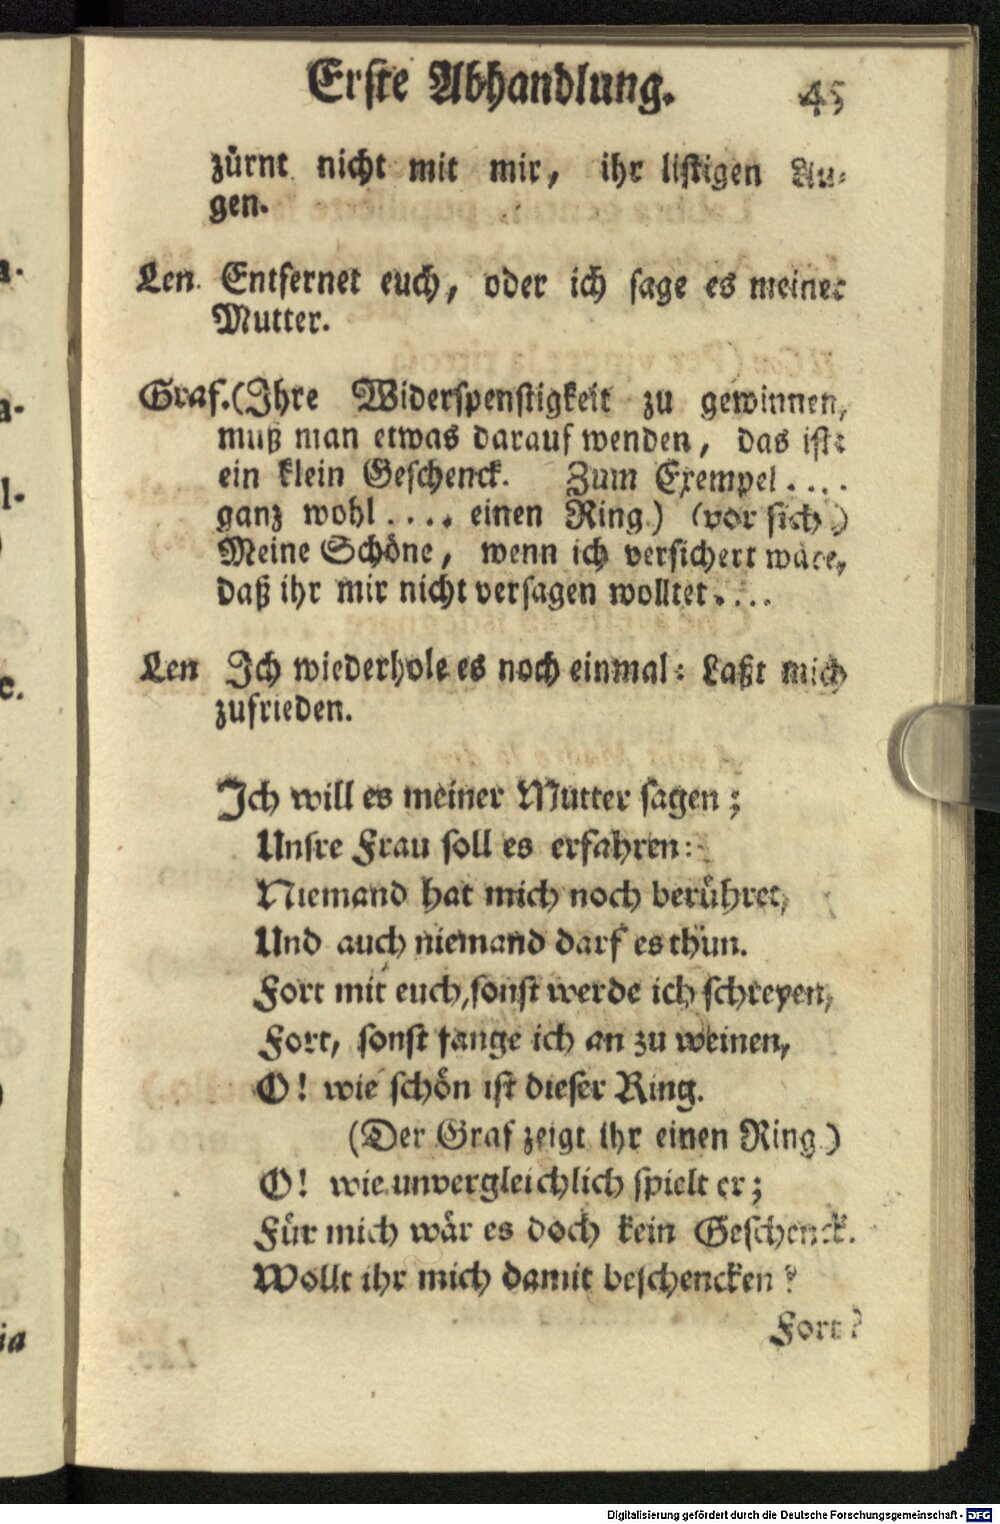 Erste Abhandlung. 45
zürnt nicht mit mir, ihr listigen Au-
gen.
Len. Entfernet euch, oder ich sage es meiner
Mutter.
Graf. (Ihre Widerspenstigkeit zu gewinnen,
muß man etwas darauf wenden, das ist:
ein klein Geschenck. Zum Exempel....
ganz wohl.... einen Ring.) (vor sich)
Meine Schöne, wenn ich versichert wäre,
daß ihr mir nicht versagen wolltet....
Len Ich wiederhole es noch einmal: Laßt mich
zufrieden.
Ich will es meiner Mutter sagen;
Unsre Frau soll es erfahren:
Niemand hat mich noch berühret,
Und auch niemand darf es thun.
Fort mit euch, sonst werde ich schreyen,
Fort, sonst fange ich an zu weinen,
O! wie schön ist dieser Ring.
(Der Graf zeigt ihr einen Ring.)
O! wie unvergleichlich spielt er;
Für mich wär es doch kein Geschenck.
Wollt ihr mich damit beschencken?
Fort?
a.
a-
l-
)
e.
)
ia
Digitalisierung gefördert durch die Deutsche Forschungsgemeinschaft - DFG